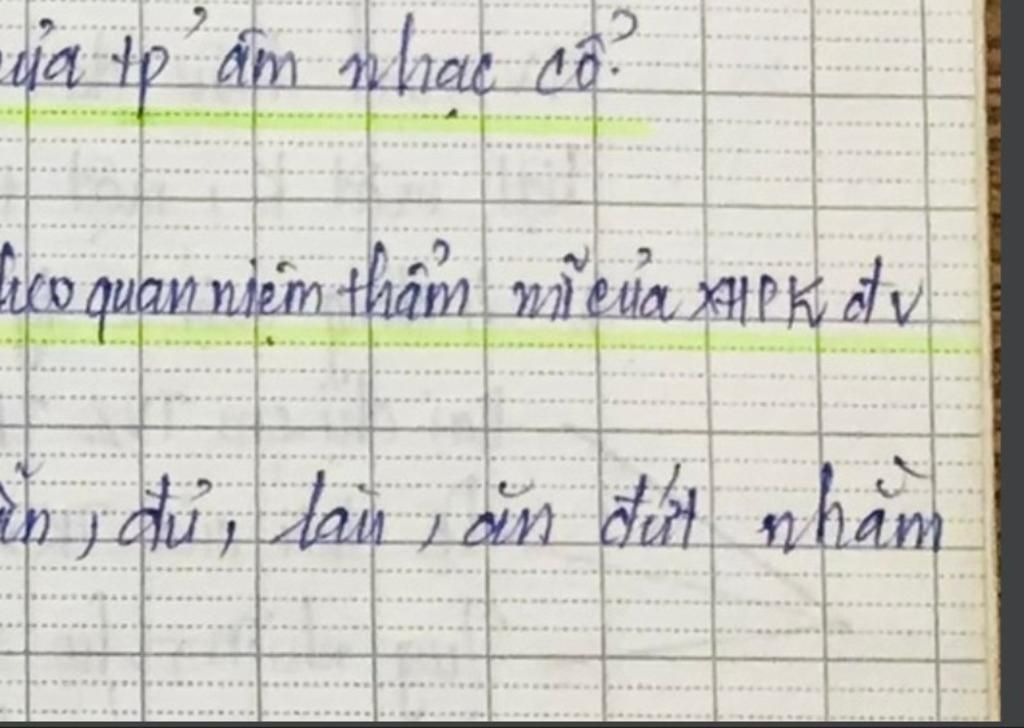 của tp' âm nhạc cổ?
theo quan niệm thẩm mĩ của XHPK đv
đủ, đứt nhằm